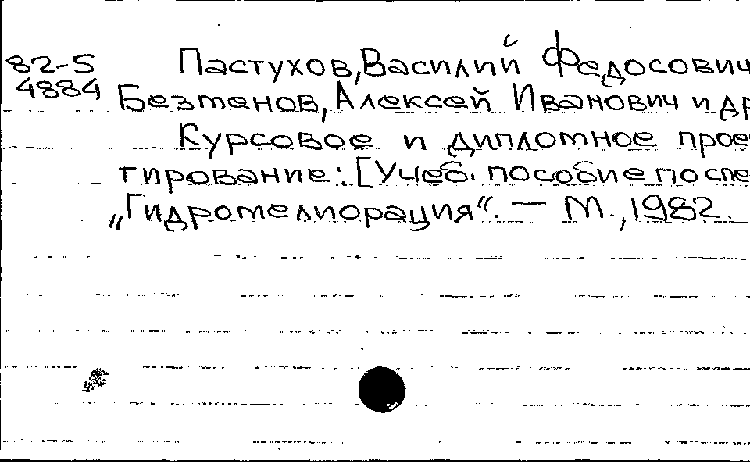 82-5 Пастухов, Василий Федосович
4884 Безменов, Алексей Иванович и др
Курсовое и дипломное проек
тирование: [Учеб. пособие по спе
„Гидромелиорация“. — М., 1982.